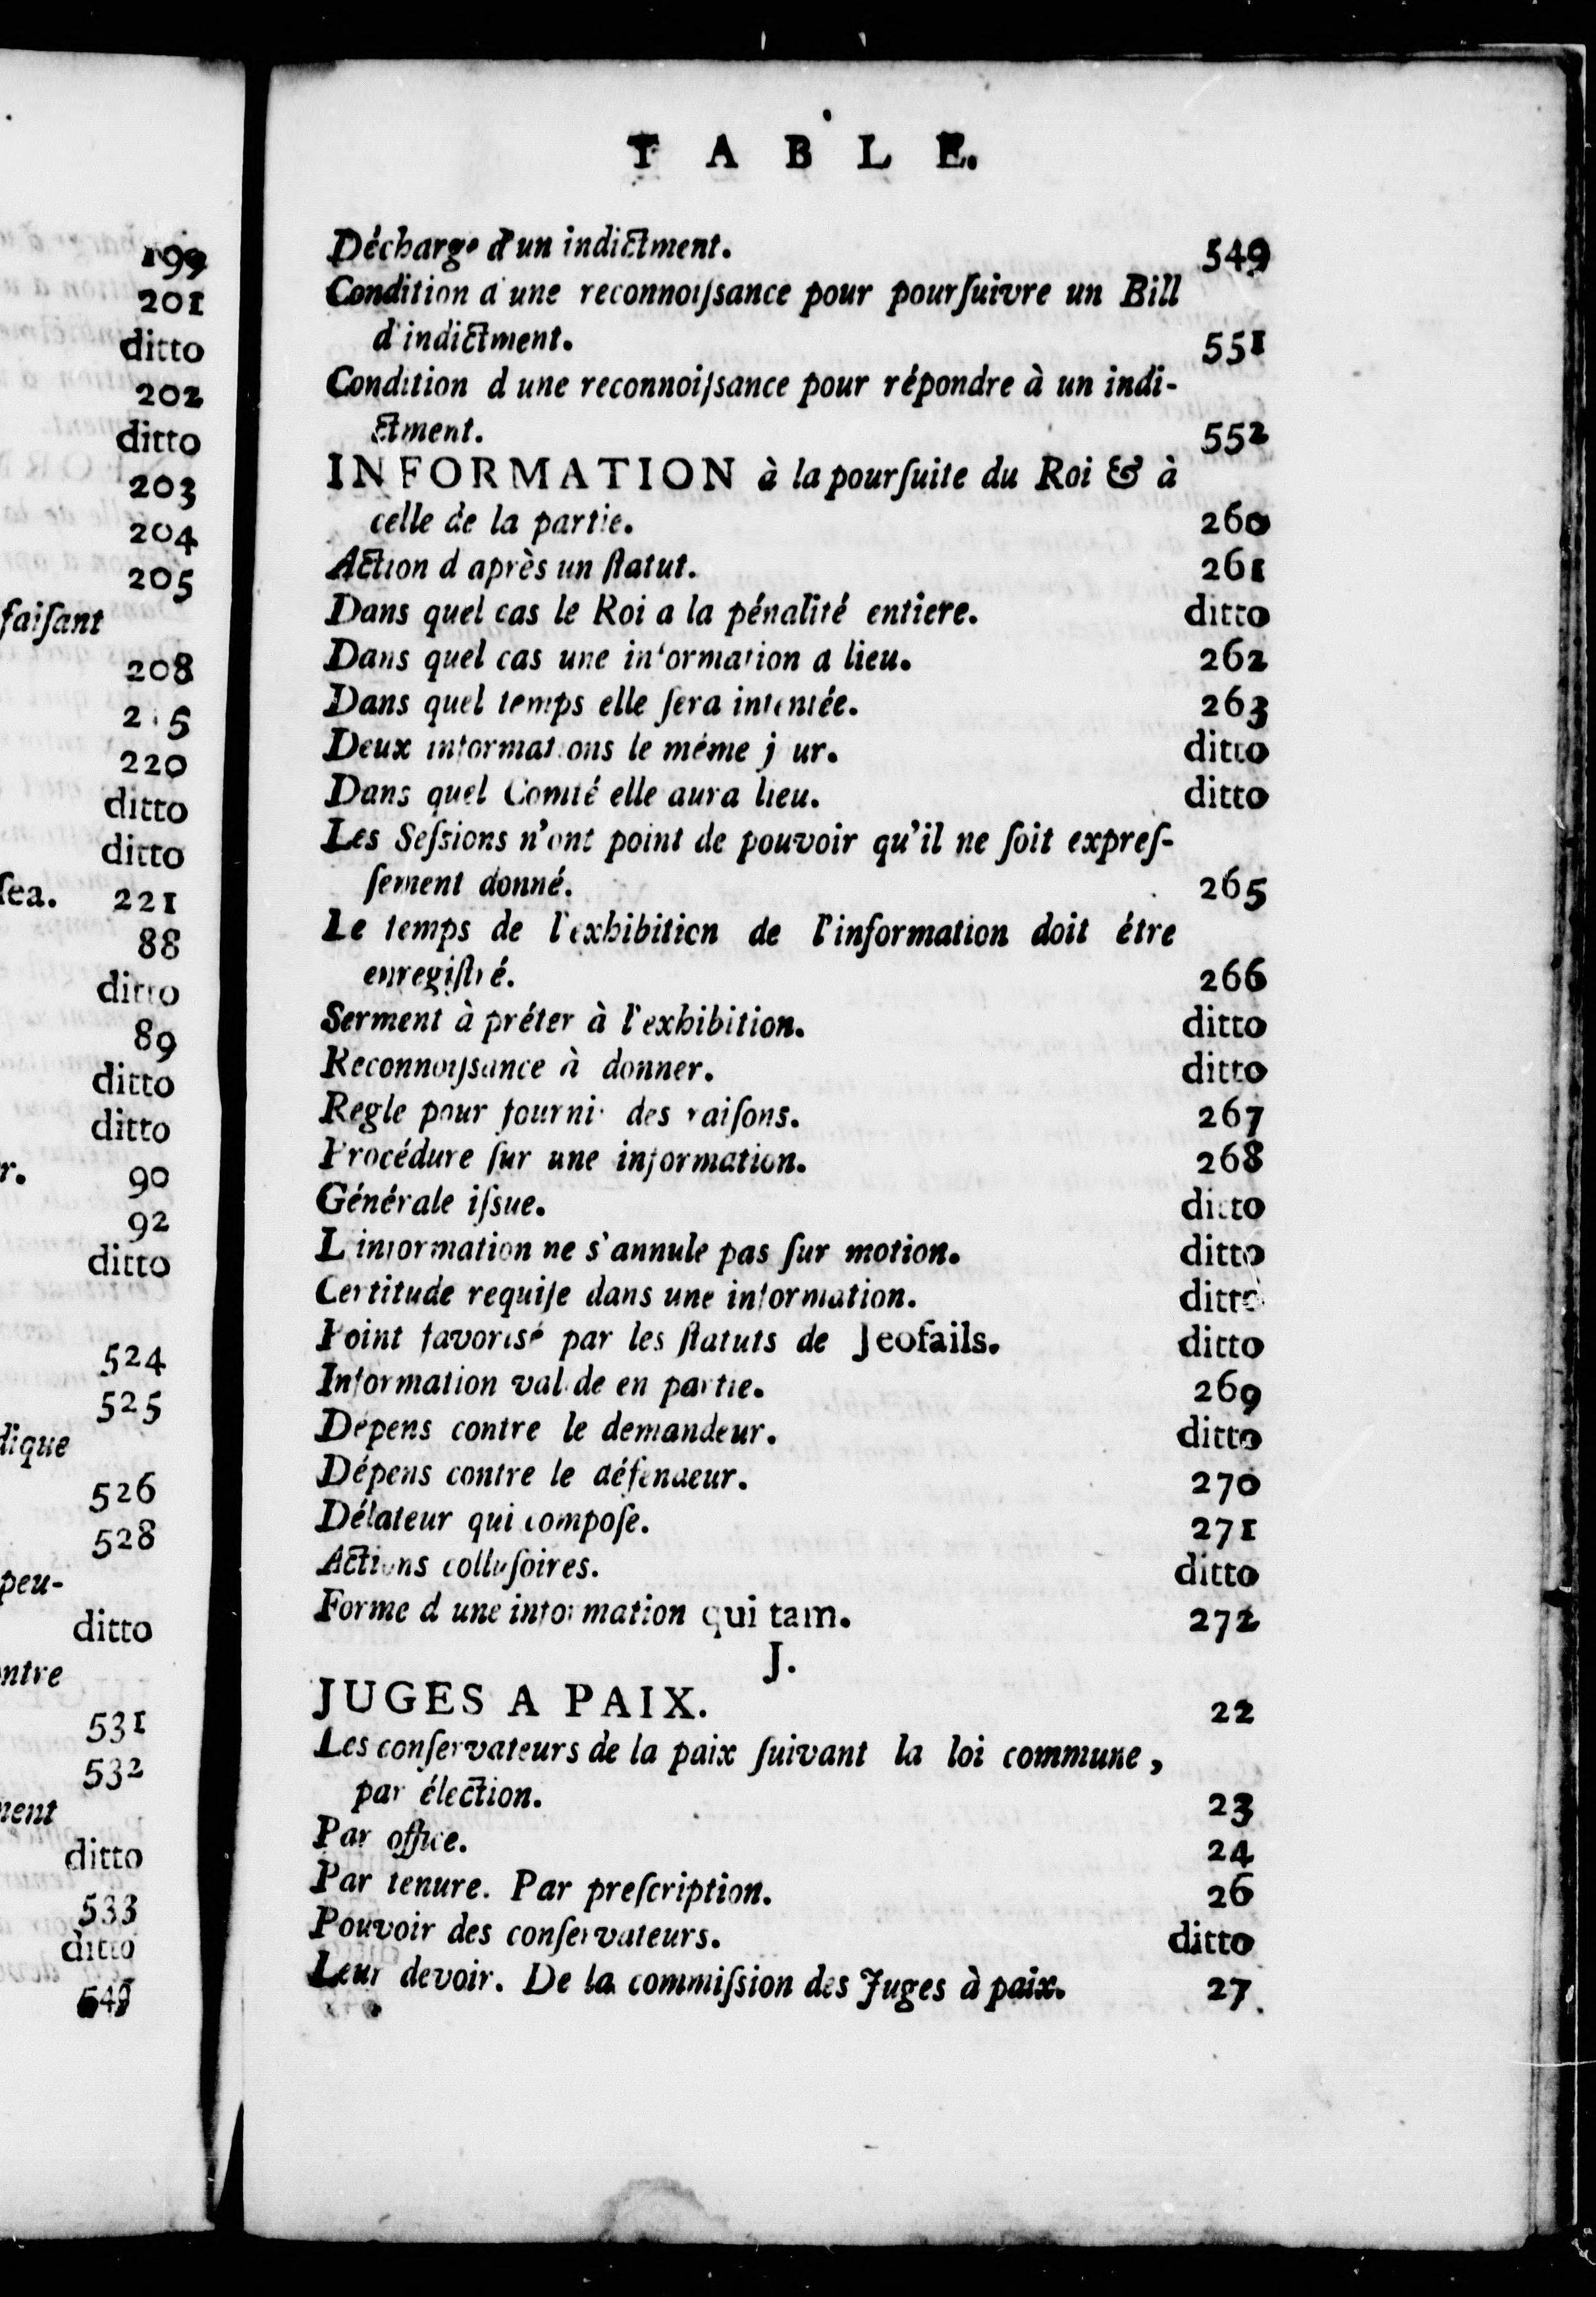 199
201
ditto
202
ditto
203
204
205
faiſant
208
220
ditto
ditto
ſea. 221
88
ditto
89
ditto
ditto
r. 90
92
ditto
524
525
dique
526
528
peu-
ditto
ntre
531
532
ment
ditto
533
ditto
TABLE.
Décharge d'un indictment. 549
Condition d'une reconnoiſsance pour pourſuivre un Bill
d'indictment. 551
Condition d une reconnoiſsance pour répondre à un indi-
ctment. 552
INFORMATION à la pourſuite du Roi & à
celle de la partie. 260
Action d après un ſtatut. 261
Dans quel cas le Roi a la pénalité entiere. ditto
Dans quel cas une information a lieu. 262
Dans quel temps elle ſera intentée. 263
Deux informations le méme jour. ditto
Dans quel Comté elle aura lieu. ditto
Les Seſsions n'ont point de pouvoir qu'il ne ſoit expreſ-
ſement donné. 265
Le temps de l'exhibition de l'information doit étre
enregiſtré. 266
Serment à préter à l'exhibition. ditto
Reconnoiſsance à donner. ditto
Regle pour fournir des raiſons. 267
Procédure ſur une information. 268
Générale iſsue. ditto
L information ne s'annule pas ſur motion. ditto
Certitude requiſe dans une information. ditto
Point favorisé par les ſtatuts de Jeofails. ditto
Information valide en partie. 269
Dépens contre le demandeur. ditto
Dépens contre le défendeur. 270
Délateur qui compoſe. 271
Actions colluſoires. ditto
Forme d une information qui tam. 272
J.
JUGES A PAIX. 22
Les conſervateurs de la paix ſuivant la loi commune,
par élection. 23
Par office. 24
Par tenure. Par preſcription. 26
Pouvoir des conſervateurs. ditto
Leur devoir. De la commiſsion des Juges à paix. 27